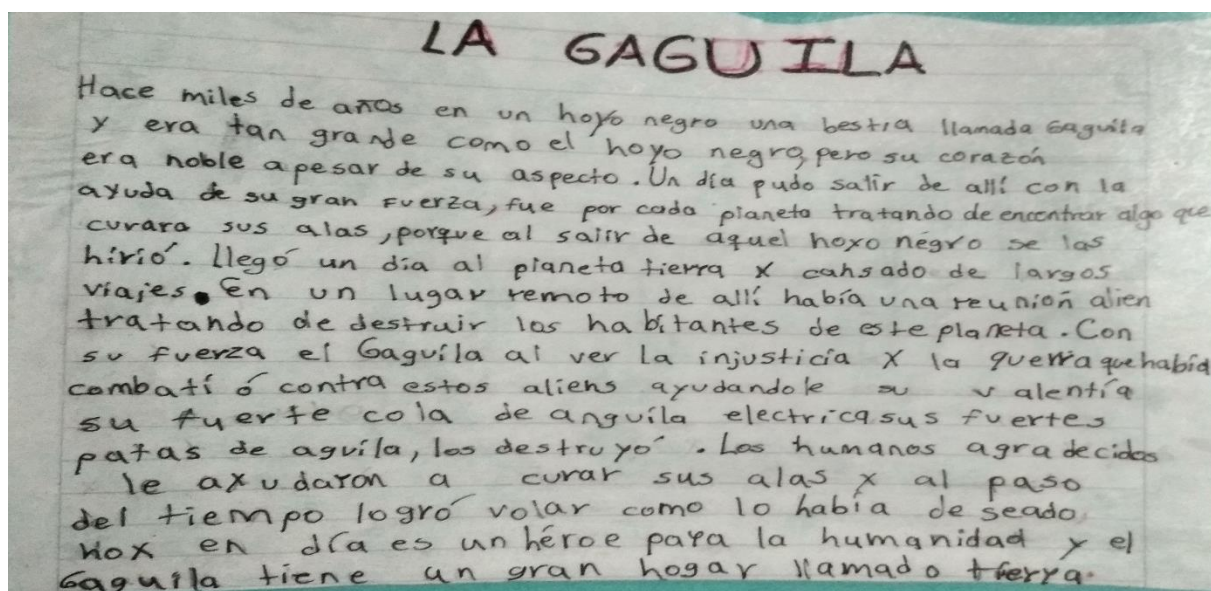 LA GAGUILA
Hace miles de años en un hoyo negro una bestia llamada Gaguila
y era tan grande como el hoyo negro, pero su corazón
era noble apesar de su aspecto. Un día pudo salir de allí con la
ayuda de su gran Fuerza, fue por cada planeta tratando de encontrar algo que
curara sus alas, porque al salir de aquel hoxo negro se las
hirió. llegó un día al planeta tierra x cansado de largos
viajes. En un lugar remoto de allí había una reunión alien
tratando de destruir los habitantes de este planeta. Con
su fuerza el Gaguila al ver la injusticia x la guerra que había
combatió contra estos aliens ayudandole su valentía
su fuerte cola de anguila electrica sus fuertes
patas de aguila, los destruyó. Los humanos agradecidos
le axudaron a curar sus alas x al paso
del tiempo logró volar como lo había deseado,
Hox en día es un héroe para la humanidad y el
Gaguila tiene un gran hogar llamado tierra.